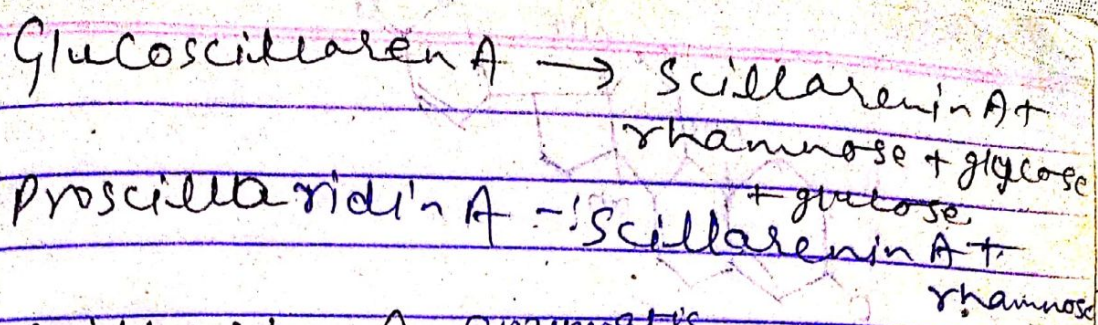 Glucoscillaren A → scillarenin A +
rhamnose + glycose
+ glucose
Proscillaridin A - scillarenin A +
rhamnose